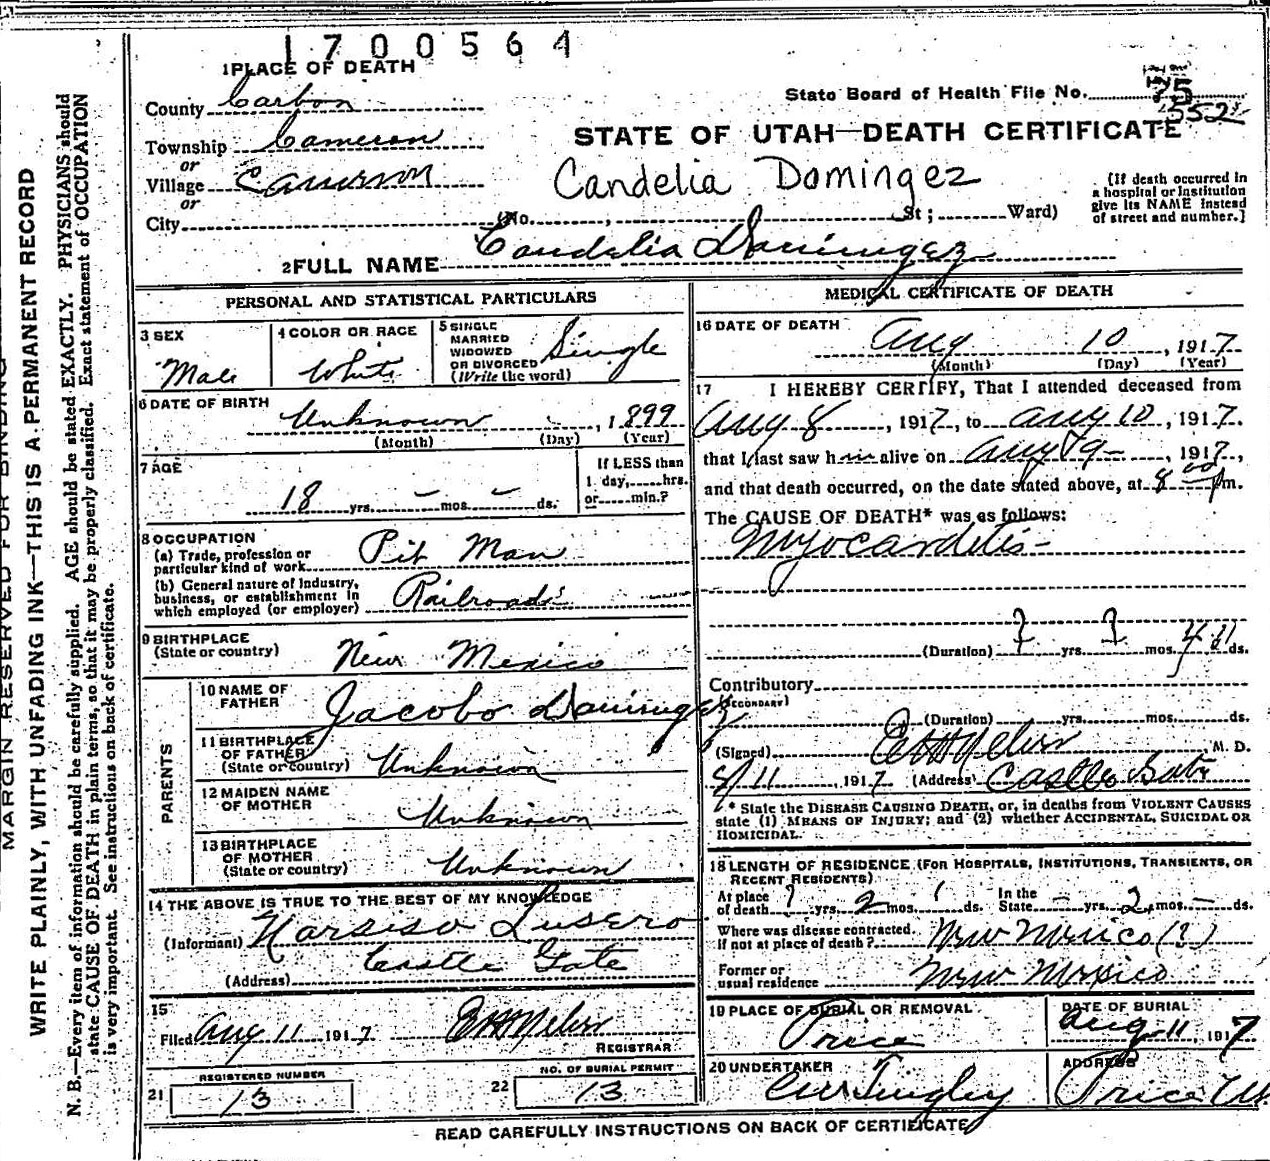 1700564
1 PLACE OF DEATH
County Carbon
State Board of Health File No. 75
552
Township Cameron
STATE OF UTAH—DEATH CERTIFICATE
or
Village Cameron
Candelia Domingez
or
City
(No. , St; Ward)
(If death occurred in
a hospital or institution
give its NAME instead
of street and number.]
2 FULL NAME Candelia Domingez
PERSONAL AND STATISTICAL PARTICULARS
3 SEX
Male
4 COLOR OR RACE
White
5 SINGLE
MARRIED
WIDOWED
OR DIVORCED
(Write the word)
Single
6 DATE OF BIRTH
Unknown , 1899
(Month) (Day) (Year)
7 AGE
18 yrs. – mos. – ds.
If LESS than
1 day, hrs.
or min.?
8 OCCUPATION
(a) Trade, profession or
particular kind of work Pit Man
(b) General nature of Industry,
business, or establishment in
which employed (or employer) Railroads
9 BIRTHPLACE
(State or country) New Mexico
PARENTS
10 NAME OF
FATHER Jacobo Domingez
11 BIRTHPLACE
OF FATHER
(State or country) Unknown
12 MAIDEN NAME
OF MOTHER Unknown
13 BIRTHPLACE
OF MOTHER
(State or country) Unknown
14 THE ABOVE IS TRUE TO THE BEST OF MY KNOWLEDGE
(Informant) Narsiso Lusero
(Address) Castle Gate
15
Filed Aug 11 1917
REGISTRAR
REGISTERED NUMBER
21 13
NO. OF BURIAL PERMIT
22 13
MEDICAL CERTIFICATE OF DEATH
16 DATE OF DEATH
Aug 10, 1917
(Month) (Day) (Year)
17 I HEREBY CERTIFY, That I attended deceased from
Aug 8, 1917, to Aug 10, 1917.
that I last saw him alive on Aug 9, 1917,
and that death occurred, on the date stated above, at 8 00 Pm.
The CAUSE OF DEATH* was as follows:
Myocardetis
(Duration) ? yrs. ? mos. ds.
Contributory
(SECONDARY)
(Duration) yrs. mos. ds.
(Signed) M. D.
8/11, 1917 (Address) Castle Gate
* State the DISEASE CAUSING DEATH, or, in deaths from VIOLENT CAUSES
state (1) MEANS OF INJURY; and (2) whether ACCIDENTAL, SUICIDAL OR
HOMICIDAL.
18 LENGTH OF RESIDENCE (FOR HOSPITALS, INSTITUTIONS, TRANSIENTS, OR
RECENT RESIDENTS)
At place
of death ? yrs. 2 mos. ds. In the
State – yrs. 2 mos. – ds.
Where was disease contracted,
if not at place of death? New Mexico (?)
Former or
usual residence New Mexico
19 PLACE OF BURIAL OR REMOVAL
Price
DATE OF BURIAL
Aug 11, 1917
20 UNDERTAKER
ADDRESS
Price Ut.
READ CAREFULLY INSTRUCTIONS ON BACK OF CERTIFICATE
MARGIN RESERVED FOR BINDING
WRITE PLAINLY, WITH UNFADING INK—THIS IS A PERMANENT RECORD
N. B.—Every item of information should be carefully supplied. AGE should be stated EXACTLY. PHYSICIANS should
state CAUSE OF DEATH in plain terms, so that it may be properly classified. Exact statement of OCCUPATION
is very important. See instructions on back of certificate.